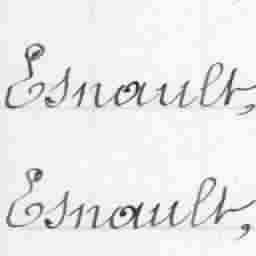 Esnault,
Esnault,